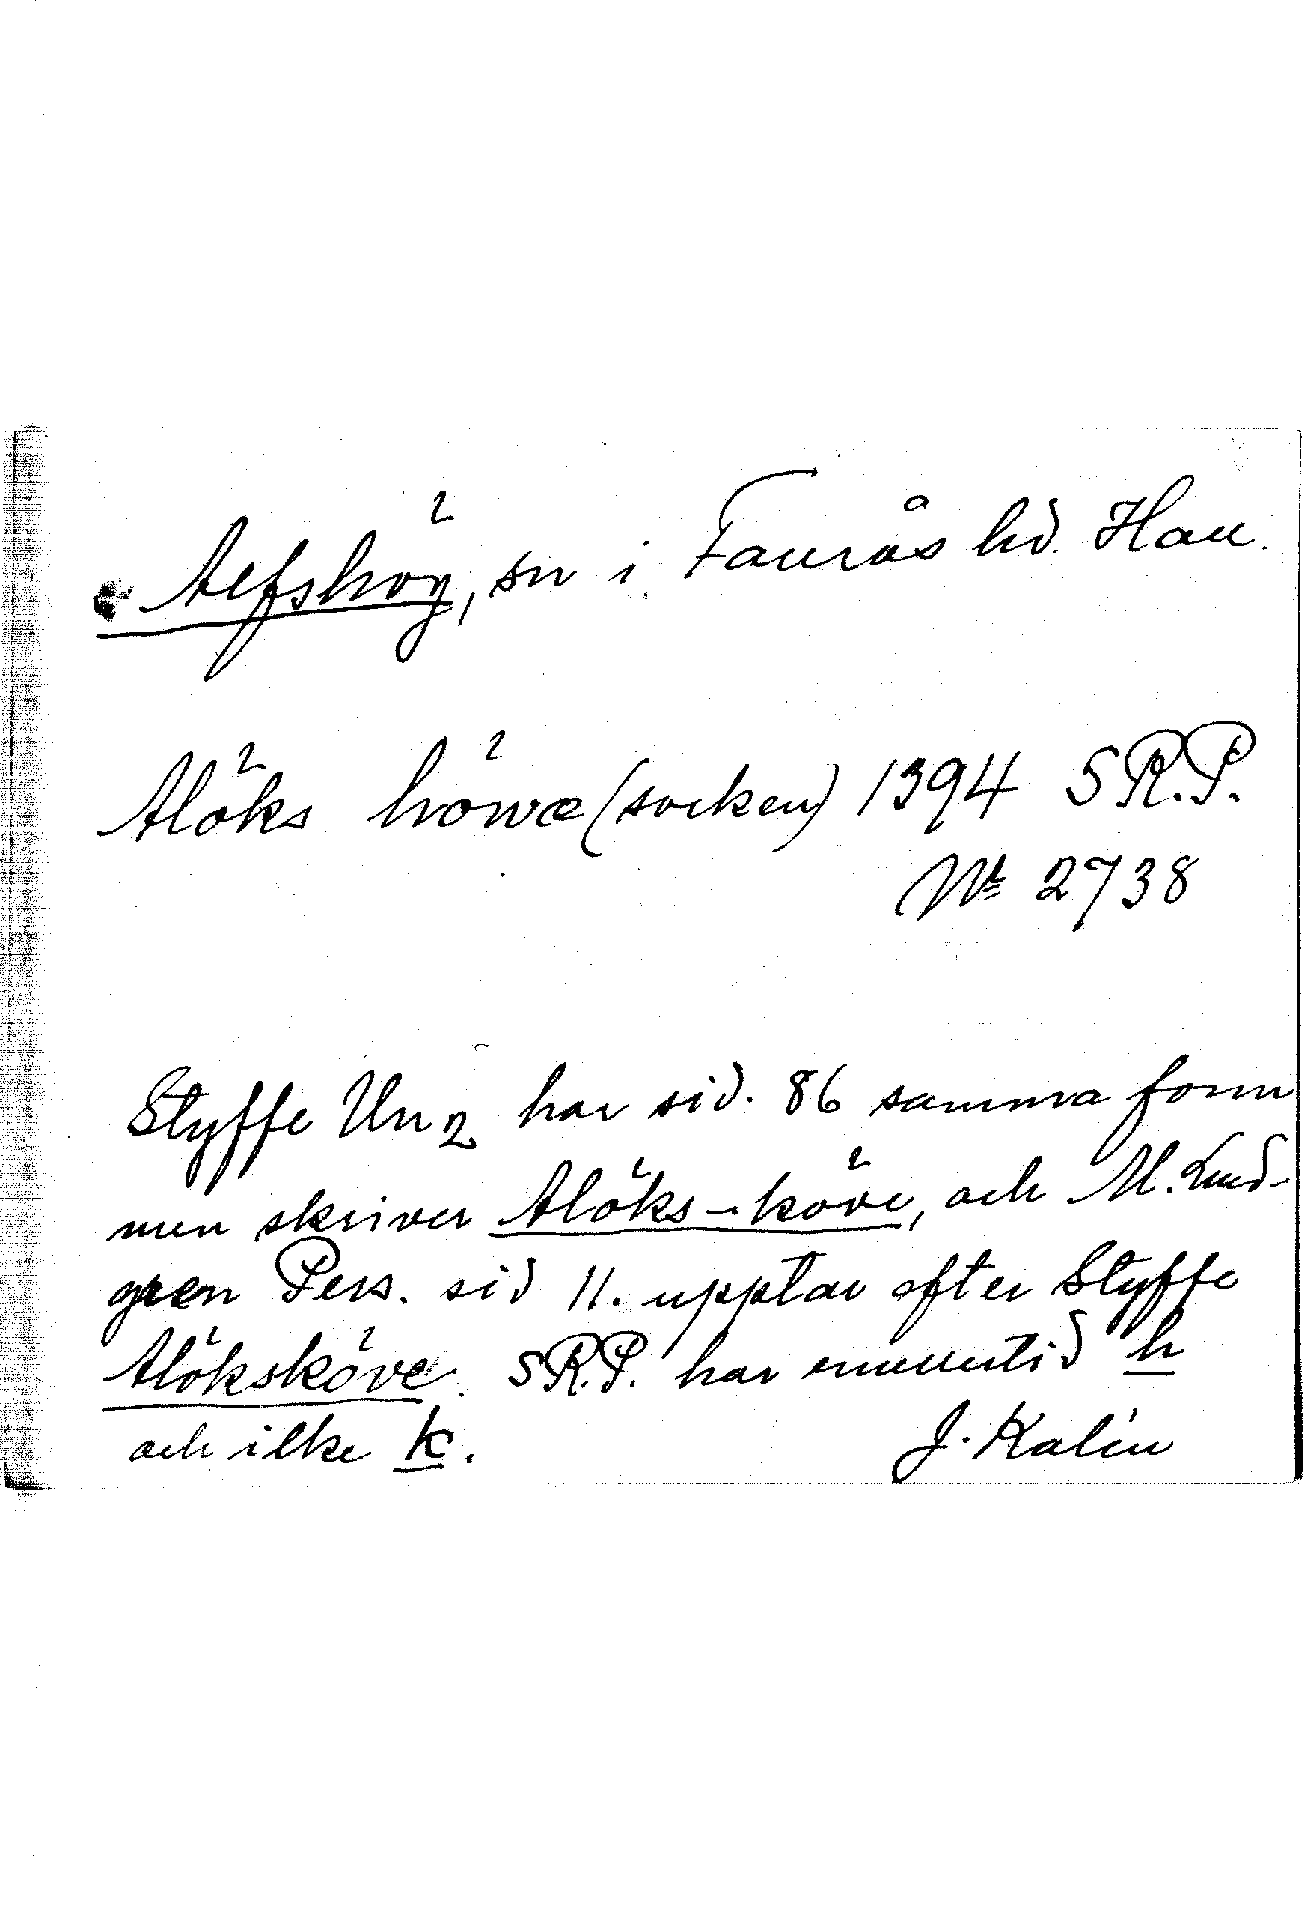 Alfshög, sn i Faurås hd. Hall.
Alöks höwæ (socken) 1394 SRP.
Nr 2738
Styffe Un 2 har sid. 86 samma form
men skriver Alöks-köve, och M. Lund-
gren Pers. sid 11. upptar efter Styffe
Alöksköve. SRP. har emellertid h
och icke k.
J. Kalén